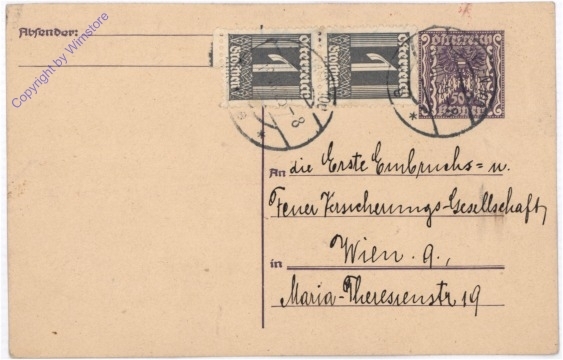 Absender:
Copyright by Winstore
1
Österreich
1
Österreich
Österreich
An die Erste Einbruchs= u.
Feuer Versicherungs-Gesellschaft,
in Wien. 9.,
Maria-Theresienstr 19